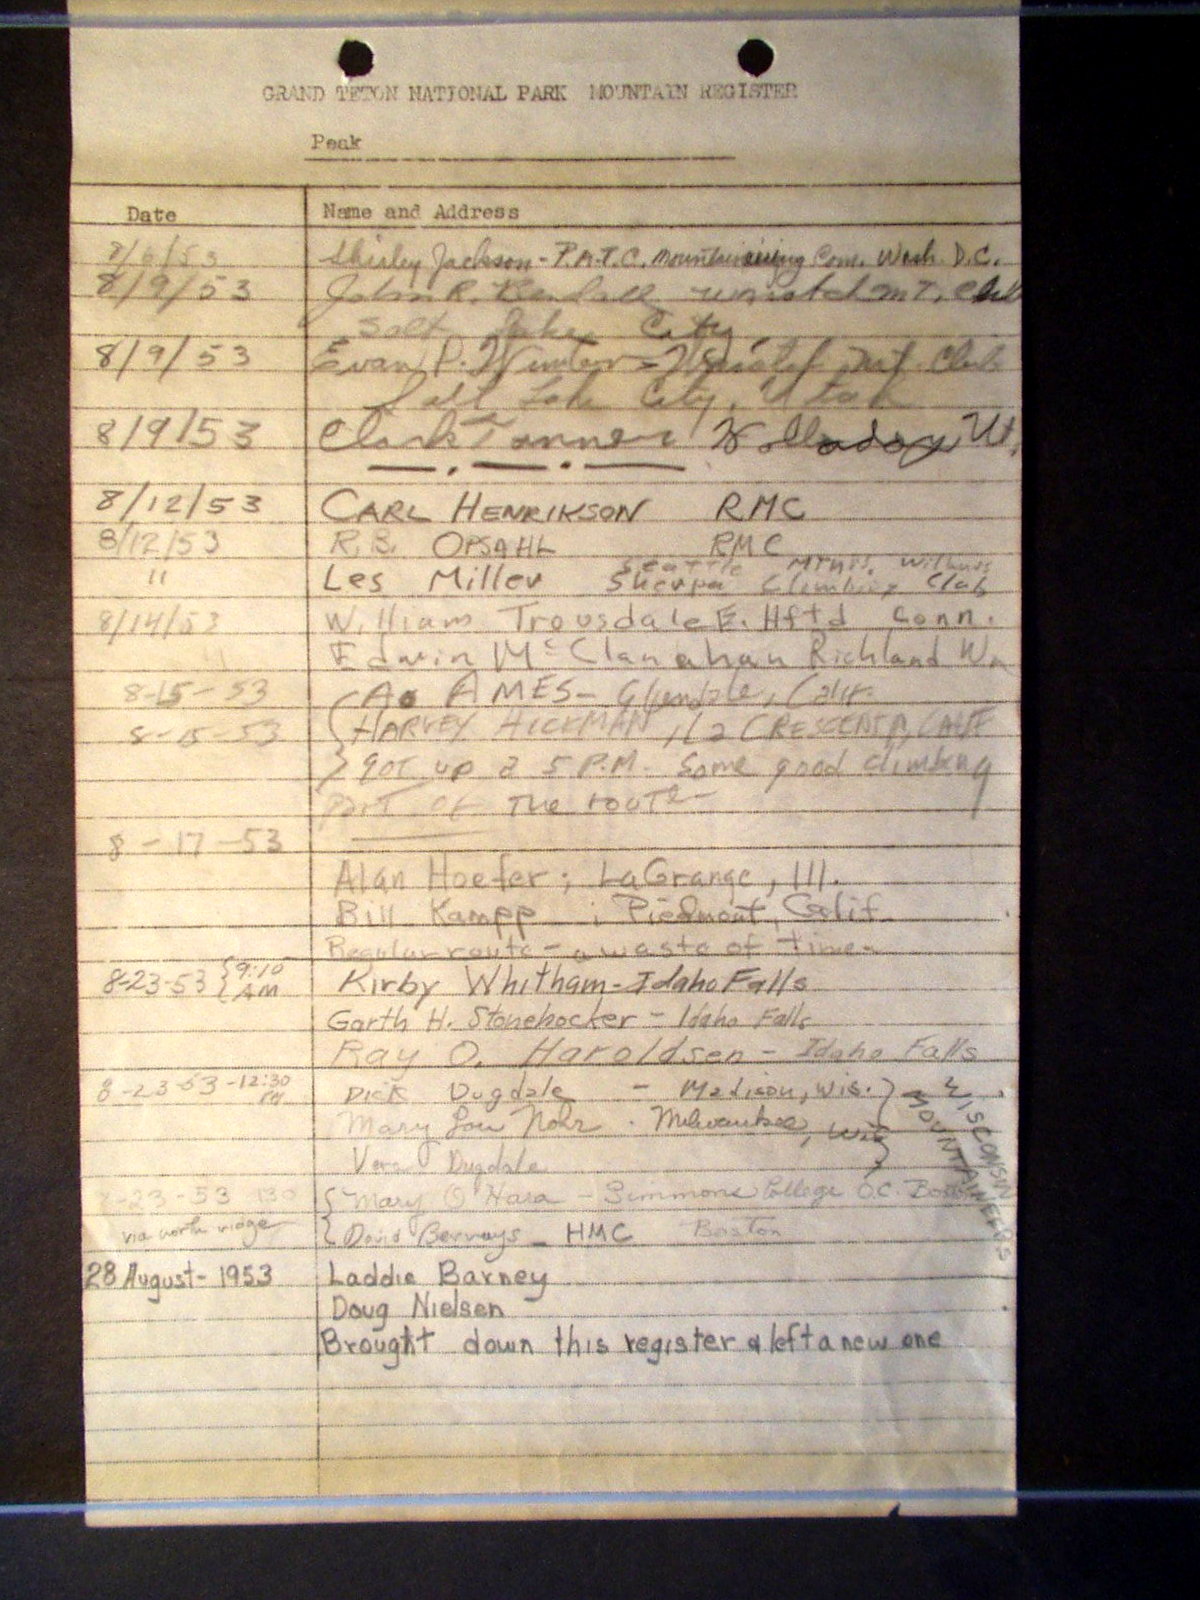 GRAND TETON NATIONAL PARK MOUNTAIN REGISTER
Peak
Date Name and Address
8/6/53 Shirley Jackson - P.A.T.C. Mountaineering Com. Wash. D.C.
8/9/53 John R. Kendall Wasatch MT. Club
Salt Lake City
8/9/53 Evan P. Winter - Wasatch Mt. Club
Salt Lake City, Utah
8/9/53 Clark Tanner Holladay Ut.
8/12/53 CARL HENRIKSON RMC
8/12/53 R.B. OPSAHL RMC
Seattle Mtnrs.
" Les Miller Sherpa Climbing Club
8/14/53 William Trousdale E. Hftd Conn.
" Edwin McClanahan Richland Wn
8-15-53 AO AMES - Glendale, Calif.
8-15-53 HARVEY HICKMAN, La CRESCENTA, CALIF
got up a 5 P.M. Some good climbing
part of the route -
8-17-53
Alan Hoefer; LaGrange, Ill.
Bill Kampp ; Piedmont, Calif.
Regular route - a waste of time -
8-23-53 {9:10 AM Kirby Whitham - Idaho Falls
Garth H. Stonehocker - Idaho Falls
Ray O. Haroldsen - Idaho Falls
8-23-53 - 12:30 PM Dick Dugdale - Madison, Wis. }
Mary Lou Nohr . Milwaukee, Wis
Vera Dugdale
WISCONSIN
MOUNTAINEERS
8-23-53 130 { Mary O'Hara - Simmons College O.C. Boston
via north ridge { David Bernays - HMC Boston
28 August - 1953 Laddie Barney
Doug Nielsen
Brought down this register & left a new one